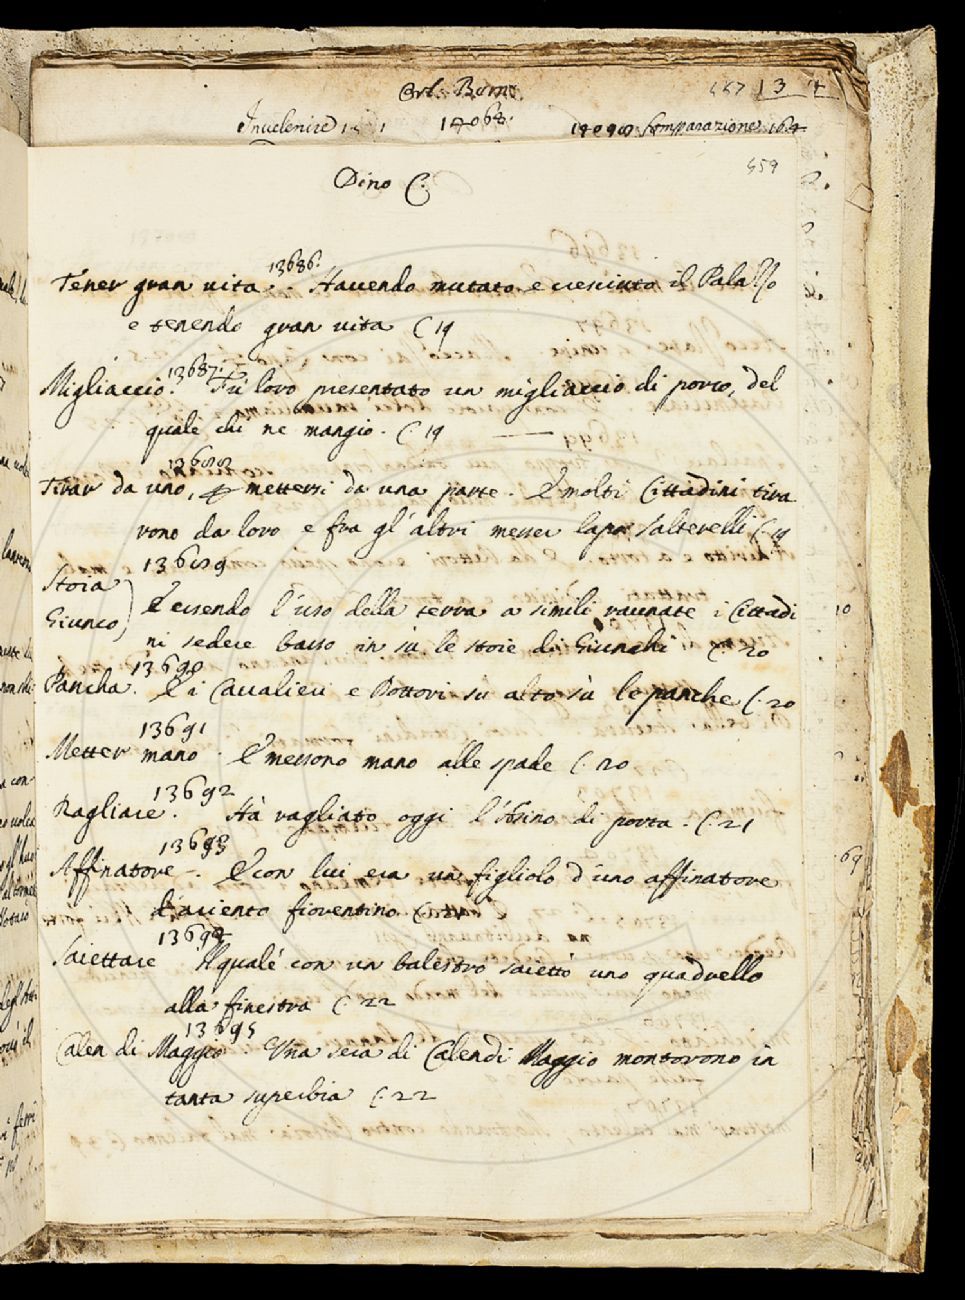 Orl. Bern.
457 13 4
Invelenire 1 1 14068. 14090 Comparazione 164
459
Dino C.
13686.
Tener gran vita. Havendo mutato e cresciuto il Palazzo
e tenendo gran vita C 19
13687.
Migliaccio. Fù loro presentato un migliaccio di porco, del
quale chi ne mangiò. C. 19
13688
Tirar da uno, mettersi da una parte. E molti Cittadini tira
rono da loro e fra gl'altri messer lapo Salterelli C. 19
13689
Stoia
Giunco
Et essendo l'uso della terra a simili raunate i Cittadi
ni sedere basso in sù le stoie di Giunchi C. 20
13690
Pancha. E i Cavalieri e Dottori su alto sù le panche C. 20
13691
Metter mano. E messono mano alle spade C. 20
13692
Ragliare. Hà ragliato oggi l'Asino di porta. C. 21
13693
Affinatore. E con lui era un figliolo d'uno affinatore
d'ariento fiorentino C. 21
13694
Saiettare. Il quale con un balestro saiettò uno quadrello
alla finestra C. 22
13695
Calen di Maggio. Una sera di Calendi Maggio montorono in
tanta superbia C. 22
10
69